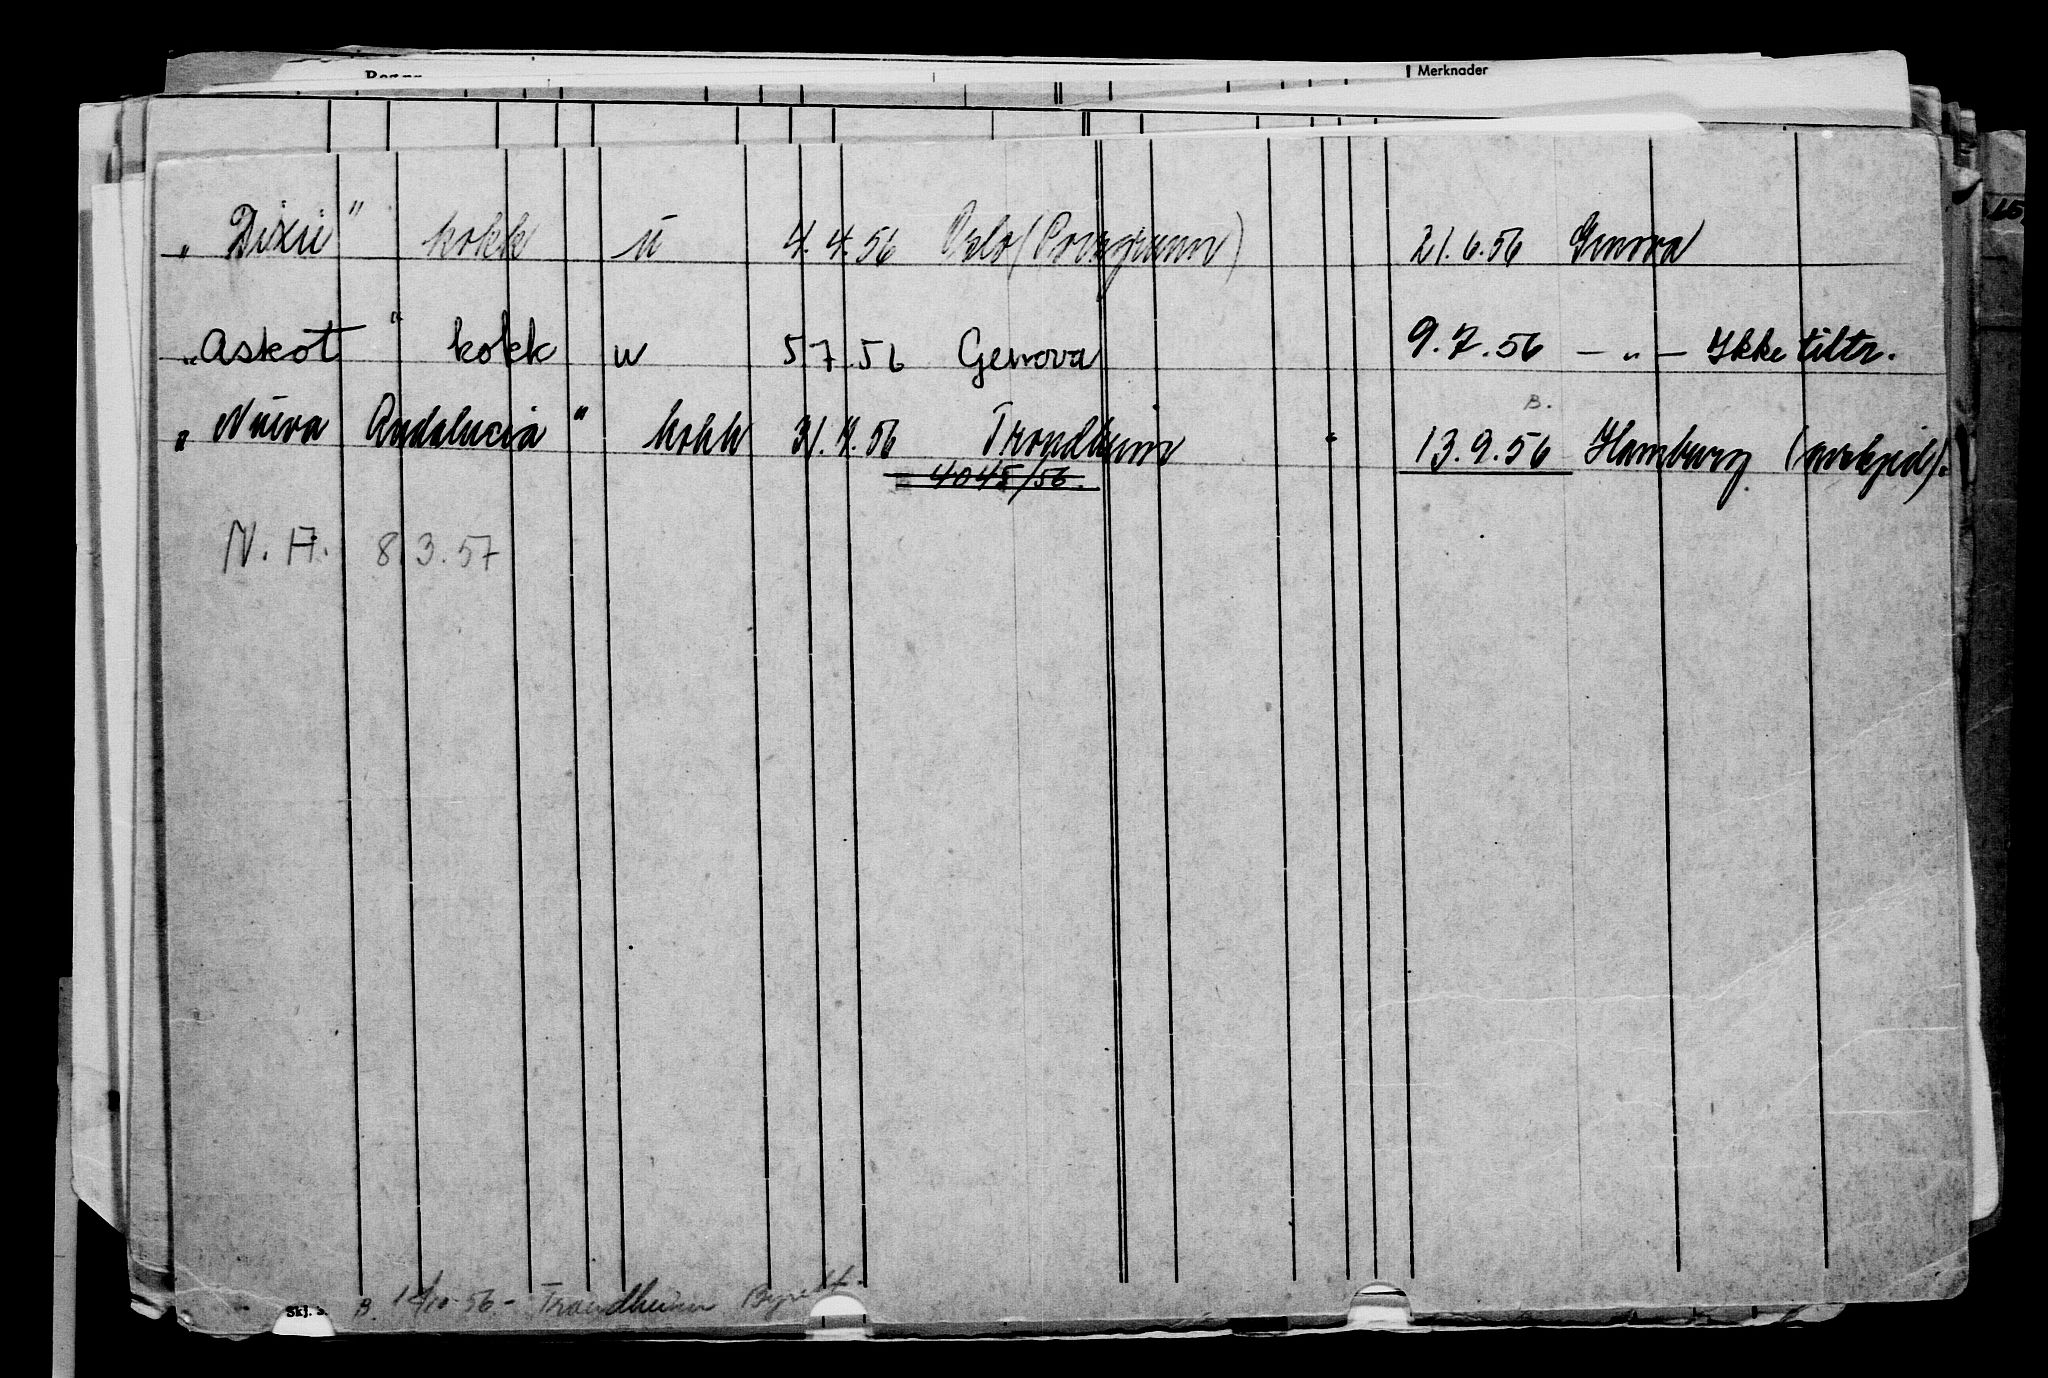 Merknader
„Dixie" kokk u 4.4.56 Oslo (Porsgrunn) 21.6.56 Genova
„Askot" kokk u 5.7.56 Genova 9.7.56 — „ — Ikke tiltr.
B.
„Nueva Andalucia" kokk 31.7.56 Trondheim 13.9.56 Hamburg (avskjed).
4045/56.
N. A. 8.3.57
Skj. S.
B. 1/10-56 - Trondheim Byrett.